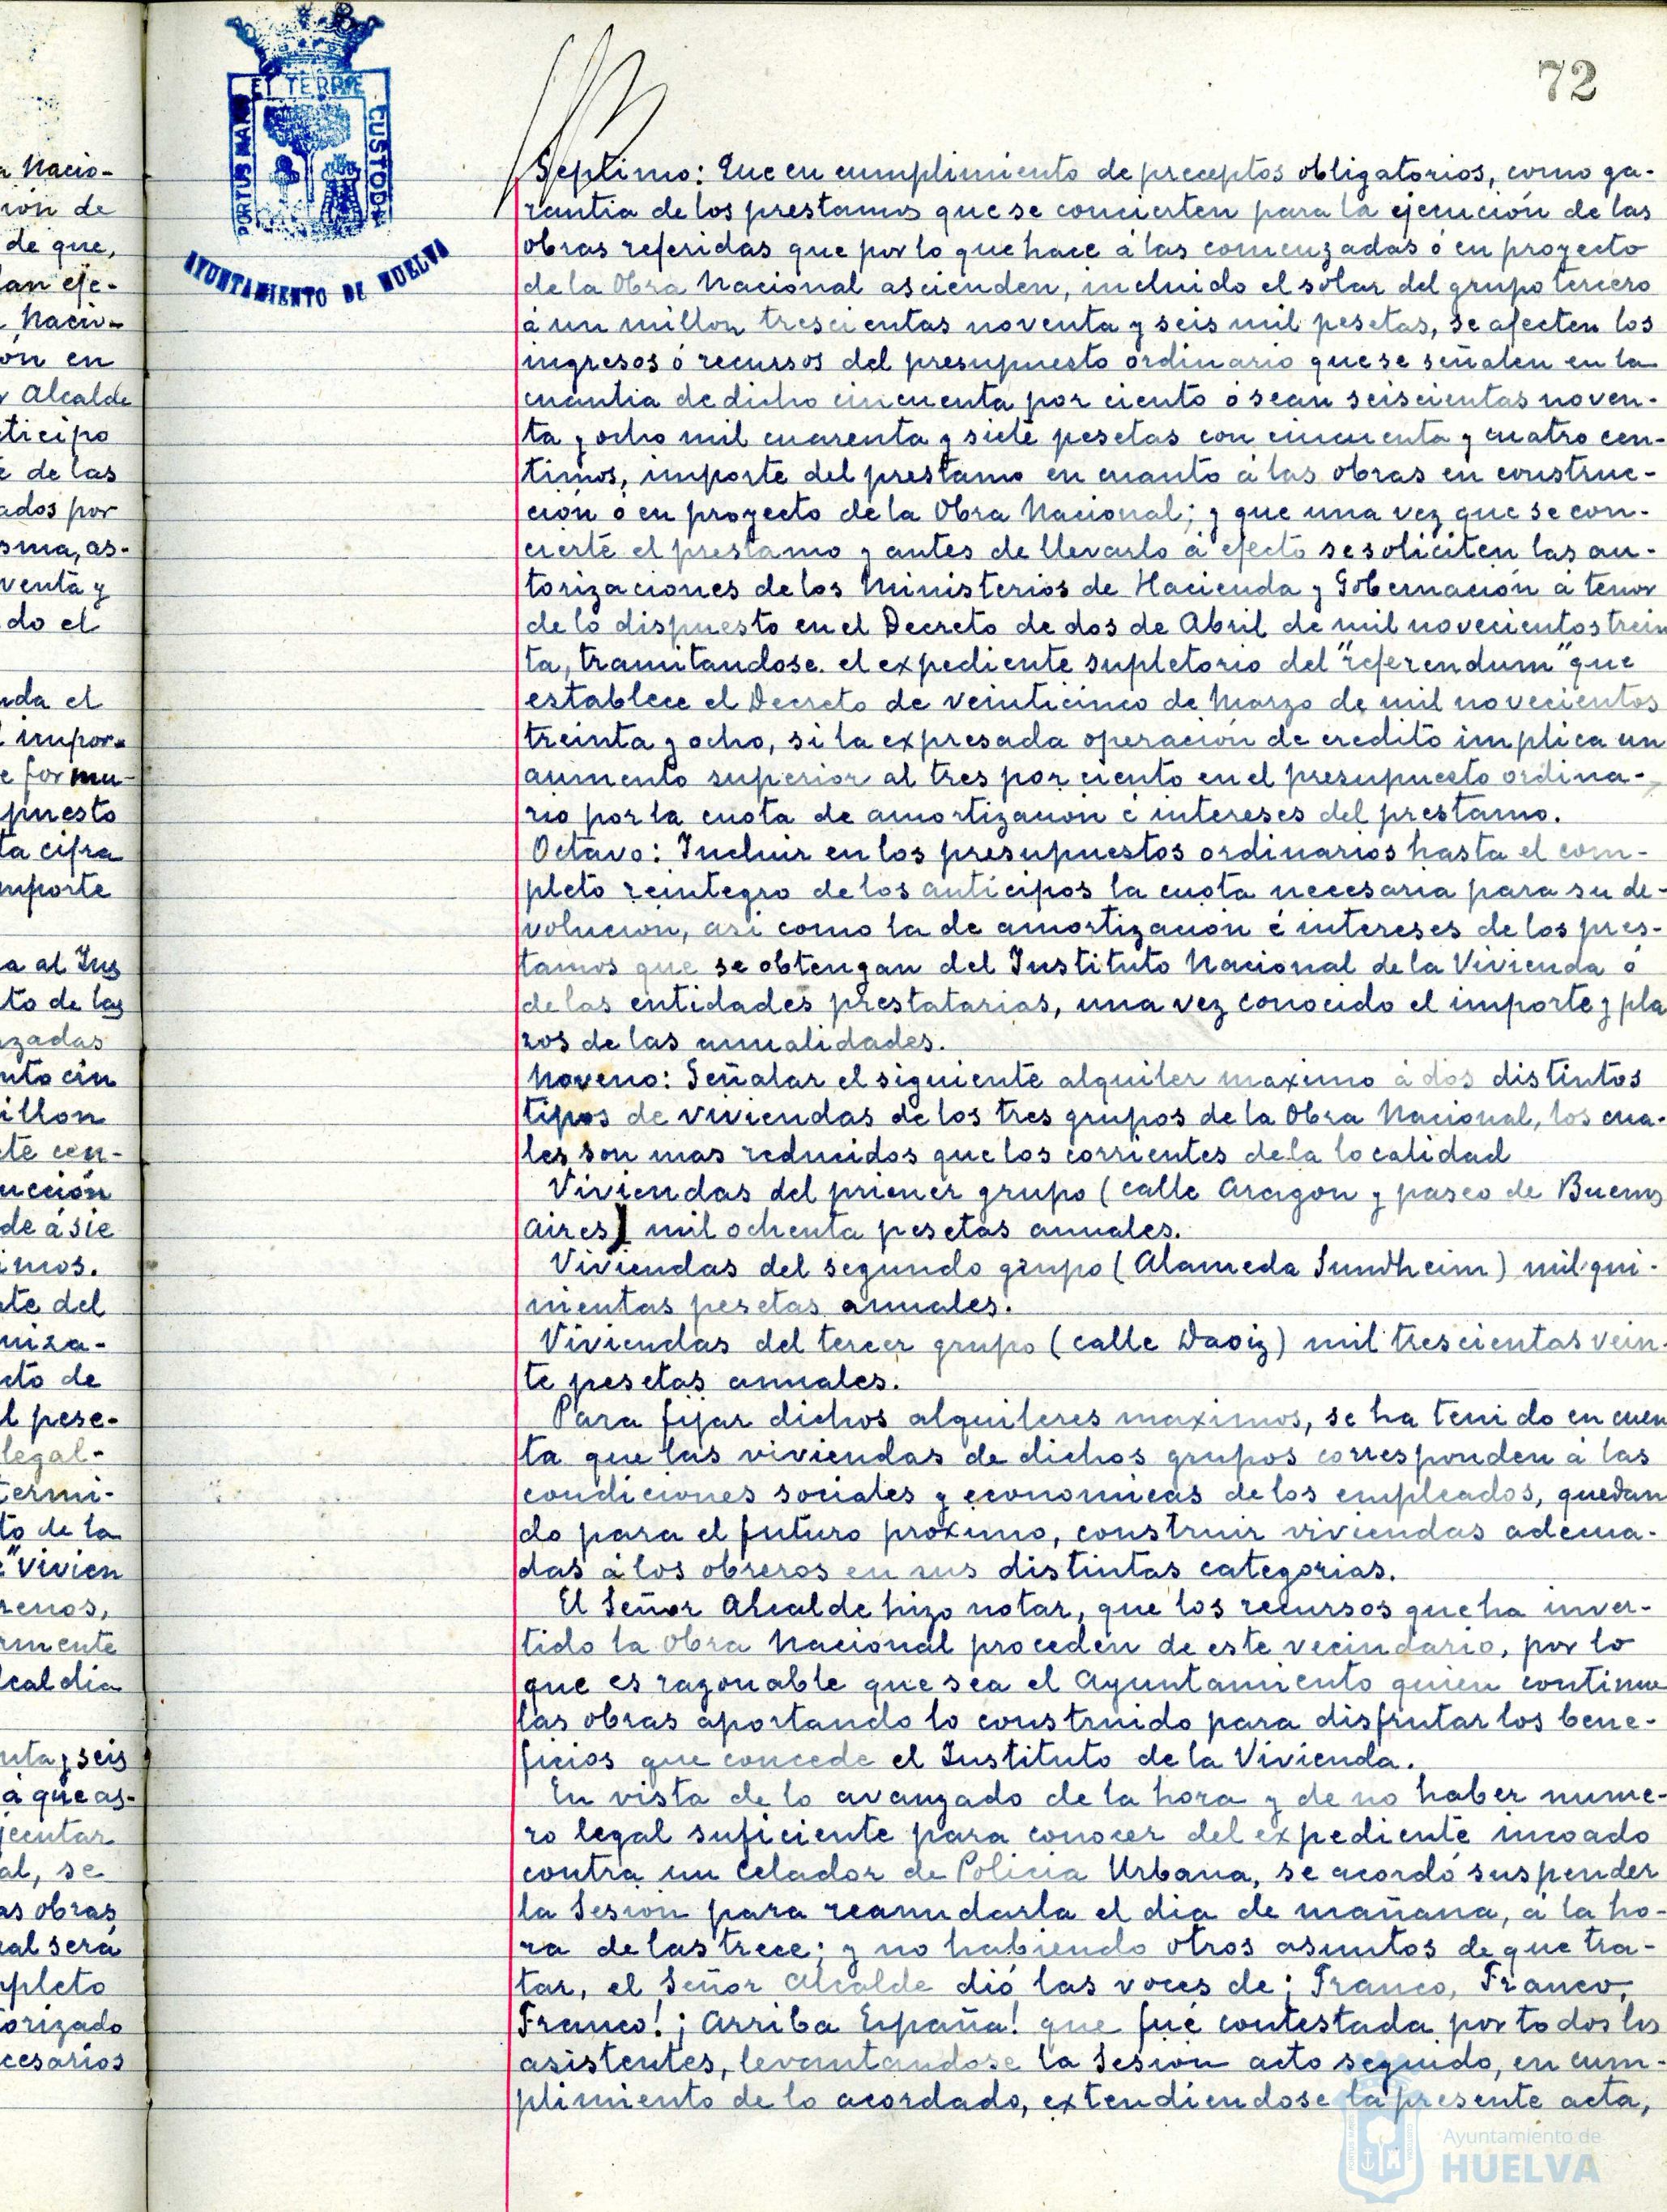 72
ET TERRÆ
PORTUS MARIS
CUSTODIA
AYUNTAMIENTO DE HUELVA
a Nacio-
ión de
de que,
an eje-
Nacio-
ón en
Alcalde
ticipo
de las
ados por
sma, as-
venta y
do el
nda el
impor-
e formu-
puesto
ta cifra
mporte
a al Ins
to de las
zadas
nto cin
illon
te cen-
ucción
de á sie
imos.
te del
niza-
cto de
l pese-
legal-
termi-
to de la
"Vivien
renos,
rmente
lcaldia
nta y seis
a que as-
jecutar
al, se
as obras
al será
pleto
torizado
cesarios
Septimo: Que en cumplimiento de preceptos obligatorios, como ga-
rantia de los prestamos que se concierten para la ejecución de las
obras referidas que por lo que hace á las comenzadas ó en proyecto
de la Obra Nacional ascienden, incluido el solar del grupo tercero
á un millon trescientas noventa y seis mil pesetas, se afecten los
ingresos ó recursos del presupuesto ordinario que se señalen en la
cuantia de dicho cincuenta por ciento ó sean seiscientas noven-
ta y ocho mil cuarenta y siete pesetas con cincuenta y cuatro cen-
timos, importe del prestamo en cuanto á las obras en construc-
ción ó en proyecto de la Obra Nacional; y que una vez que se con-
cierte el prestamo y antes de llevarlo á efecto se soliciten las au-
torizaciones de los Ministerios de Hacienda y Gobernación á tenor
de lo dispuesto en el Decreto de dos de Abril de mil novecientos trein
ta, tramitandose el expediente supletorio del "referendum" que
establece el Decreto de veinticinco de Marzo de mil novecientos
treinta y ocho, si la expresada operación de credito implica un
aumento superior al tres por ciento en el presupuesto ordina-
rio por la cuota de amortización é intereses del prestamo.
Octavo: Incluir en los presupuestos ordinarios hasta el com-
pleto reintegro de los anticipos la cuota necesaria para su de-
volucion, asi como la de amortización é intereses de los pres-
tamos que se obtengan del Instituto Nacional de la Vivienda ó
de las entidades prestatarias, una vez conocido el importe y pla
zos de las anualidades.
Noveno: Señalar el siguiente alquiler maximo á dos distintos
tipos de viviendas de los tres grupos de la Obra Nacional, los cua-
les son mas reducidos que los corrientes de la localidad
Viviendas del primer grupo (calle Aragon y paseo de Buenos
Aires) mil ochenta pesetas anuales.
Viviendas del segundo grupo (Alameda Sundheim) mil qui-
nientas pesetas anuales.
Viviendas del tercer grupo (calle Daoiz) mil trescientas vein-
te pesetas anuales.
Para fijar dichos alquileres maximos, se ha tenido en cuen
ta que las viviendas de dichos grupos corresponden á las
condiciones sociales y economicas de los empleados, quedan
do para el futuro proximo, construir viviendas adecua-
das á los obreros en sus distintas categorias.
El Señor Alcalde hizo notar, que los recursos que ha inver-
tido la Obra Nacional proceden de este vecindario, por lo
que es razonable que sea el Ayuntamiento quien continue
las obras aportando lo construido para disfrutar los bene-
ficios que concede el Instituto de la Vivienda.
En vista de lo avanzado de la hora y de no haber nume-
ro legal suficiente para conocer del expediente incoado
contra un Celador de Policia Urbana, se acordó suspender
la Sesion para reanudarla el dia de mañana, á la ho-
ra de las trece; y no habiendo otros asuntos de que tra-
tar, el Señor Alcalde dió las voces de ¡Franco, Franco,
Franco! ¡Arriba España! que fué contestada por todos los
asistentes, levantandose la Sesion acto seguido, en cum-
plimiento de lo acordado, extendiendose la presente acta,
Ayuntamiento de
HUELVA